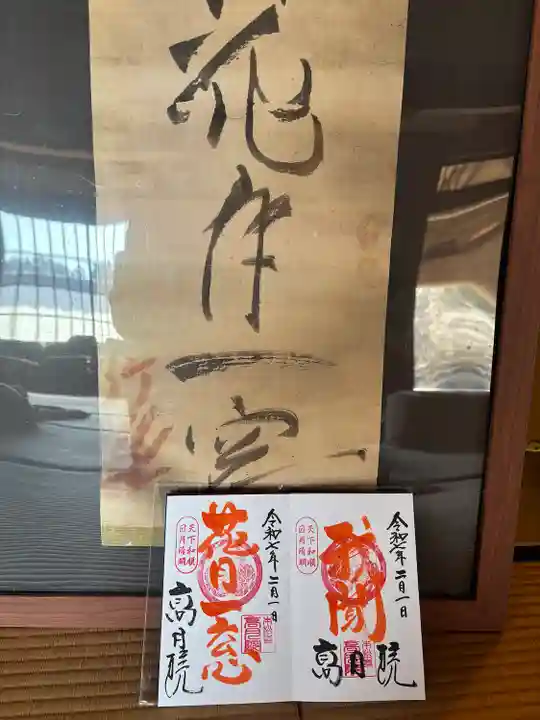 花月一
令和七年二月一日
聞
天下和順
日月清明
高月院
令和七年二月一日
花月一窓
天下和順
日月清明
高月院